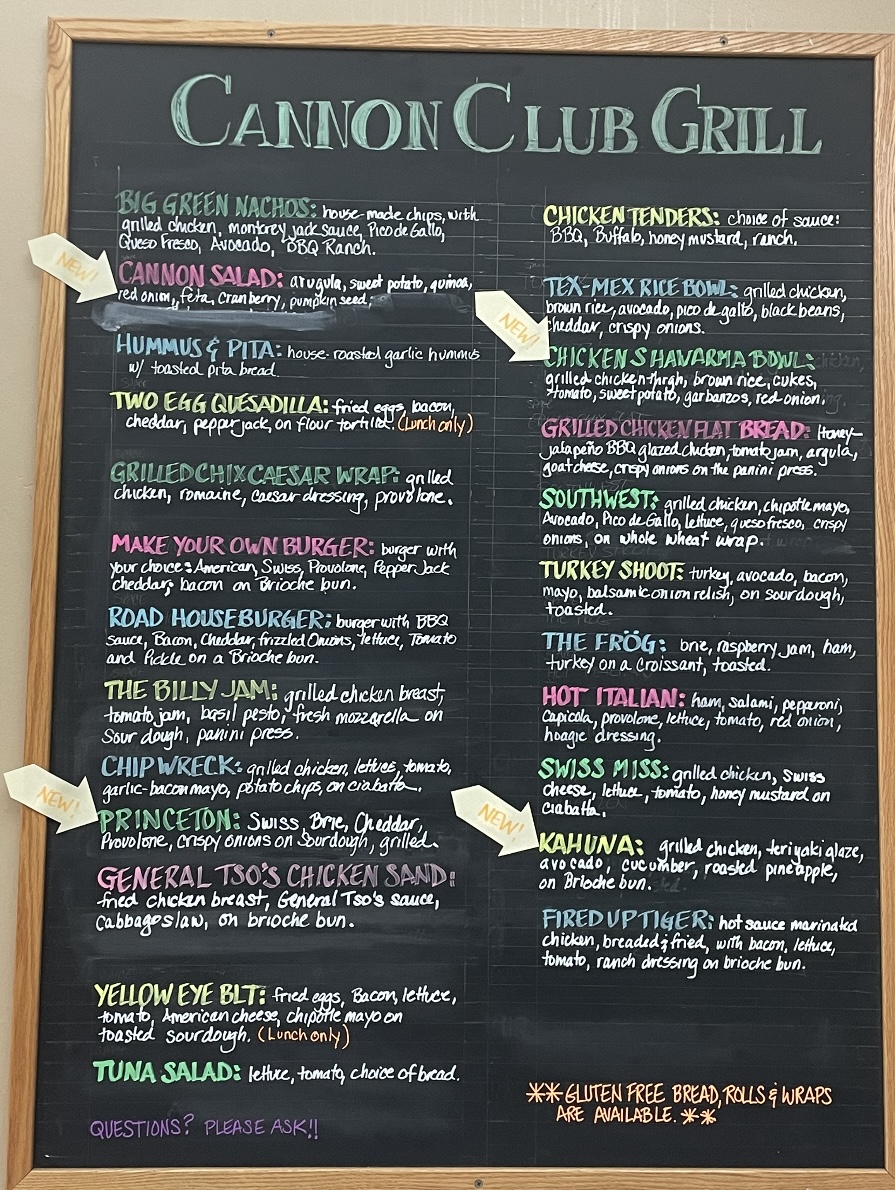 CANNON CLUB GRILL
BIG GREEN NACHOS: house-made chips, with
grilled chicken, monterey jack sauce, Pico de Gallo,
Queso Fresco, Avocado, BBQ Ranch.
NEW!
CANNON SALAD: arugula, sweet potato, quinoa,
red onion, feta, cranberry, pumpkin seed,
HUMMUS & PITA: house-roasted garlic hummus
w/ toasted pita bread
TWO EGG QUESADILLA: fried eggs, bacon,
cheddar, pepperjack, on flour tortilla. (Lunch only)
GRILLED CHIX CAESAR WRAP: grilled
chicken, romaine, caesar dressing, provolone.
MAKE YOUR OWN BURGER: burger with
your choice: American, Swiss, Provolone, Pepper Jack
cheddar, bacon on Brioche bun.
ROAD HOUSE BURGER: burger with BBQ
sauce, Bacon, Cheddar, frizzled Onions, lettuce, Tomato
and Pickle on a Brioche bun.
THE BILLY JAM: grilled chicken breast,
tomato jam, basil pesto, fresh mozzarella on
Sour dough, panini press.
CHIPWRECK: grilled chicken, lettuce, tomato,
garlic-bacon mayo, potato chips, on ciabatta.
NEW!
PRINCETON: Swiss, Brie, Cheddar,
Provolone, crispy onions on Sourdough, grilled.
GENERAL TSO'S CHICKEN SAND:
fried chicken breast, General Tso's sauce,
Cabbage slaw, on brioche bun.
YELLOW EYE BLT: fried eggs, Bacon, lettuce,
tomato, American cheese, chipotle mayo on
toasted sourdough. (Lunch only)
TUNA SALAD: lettuce, tomato, choice of bread.
QUESTIONS? PLEASE ASK!!
CHICKEN TENDERS: choice of sauce:
BBQ, Buffalo, honey mustard, ranch.
TEX-MEX RICE BOWL: grilled chicken,
brown rice, avocado, pico de gallo, black beans,
cheddar, crispy onions.
NEW!
CHICKEN SHAWARMA BOWL:
grilled chicken thigh, brown rice, cukes,
tomato, sweet potato, garbanzos, red onion.
GRILLED CHICKEN FLAT BREAD: Honey-
jalapeño BBQ glazed chicken, tomato jam, argula,
goat cheese, crispy onions on the panini press.
SOUTHWEST: grilled chicken, chipotle mayo,
Avocado, Pico de Gallo, lettuce, queso fresco, crispy
onions, on whole wheat wrap.
TURKEY SHOOT: turkey, avocado, bacon,
mayo, balsamic onion relish, on sourdough,
toasted.
THE FRÖG: brie, raspberry jam, ham,
turkey on a Croissant, toasted.
HOT ITALIAN: ham, salami, pepperoni,
Capicola, provolone, lettuce, tomato, red onion,
hoagie dressing.
SWISS MISS: grilled chicken, Swiss
cheese, lettuce, tomato, honey mustard on
ciabatta.
NEW!
KAHUNA: grilled chicken, teriyaki glaze,
avocado, cucumber, roasted pineapple,
on Brioche bun.
FIRED UP TIGER: hot sauce marinated
chicken, breaded & fried, with bacon, lettuce,
tomato, ranch dressing on brioche bun.
**GLUTEN FREE BREAD, ROLLS & WRAPS
ARE AVAILABLE.**